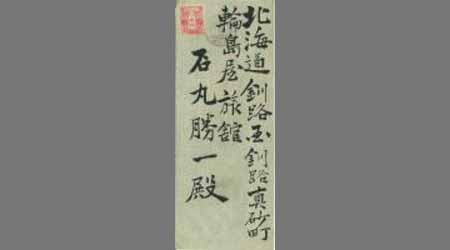 北海道釧路国釧路真砂町
輪島屋旅舘
石丸勝一殿